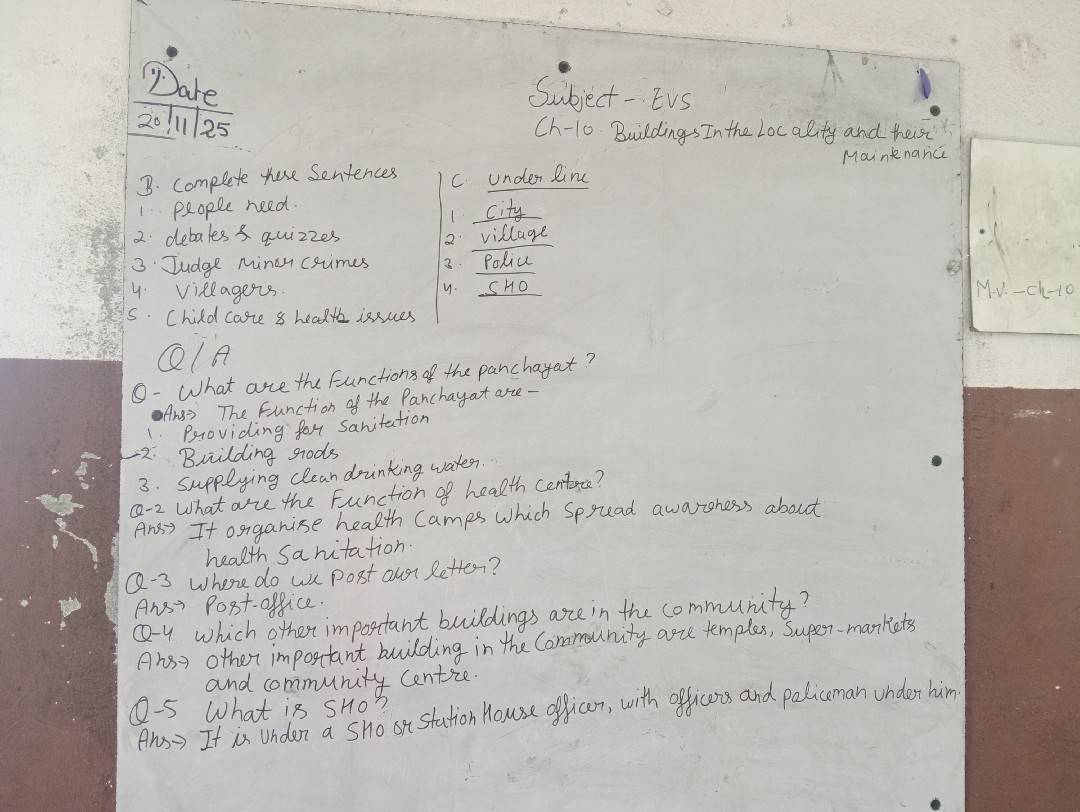 Date
20/11/25
Subject - EVS
Ch-10. Buildings In the Locality and their
Maintenance
B. Complete these Sentences
1. people need.
2. debates & quizzes
3. Judge Minor crimes
4. Villagers.
5. Child care & health issues
C. under line
1. City
2. village
3. Police
4. SHO
Q/A
Q- What are the Functions of the panchayat?
Ans→ The Function of the Panchayat are -
1. Providing for Sanitation
2. Building rods
3. Supplying clean drinking water.
Q-2 What are the Function of health centere?
Ans→ It organise health Camps which Spread awareness about
health Sanitation.
Q-3 Where do we post our letter?
Ans→ Post-office.
Q-4 which other important buildings are in the community?
Ans→ other important building in the Community are temples, Super-markets
and community Centre.
Q-5 What is SHO?
Ans→ It is under a SHO or Station House officer, with officers and policeman under him.
M.V. - Ch-10